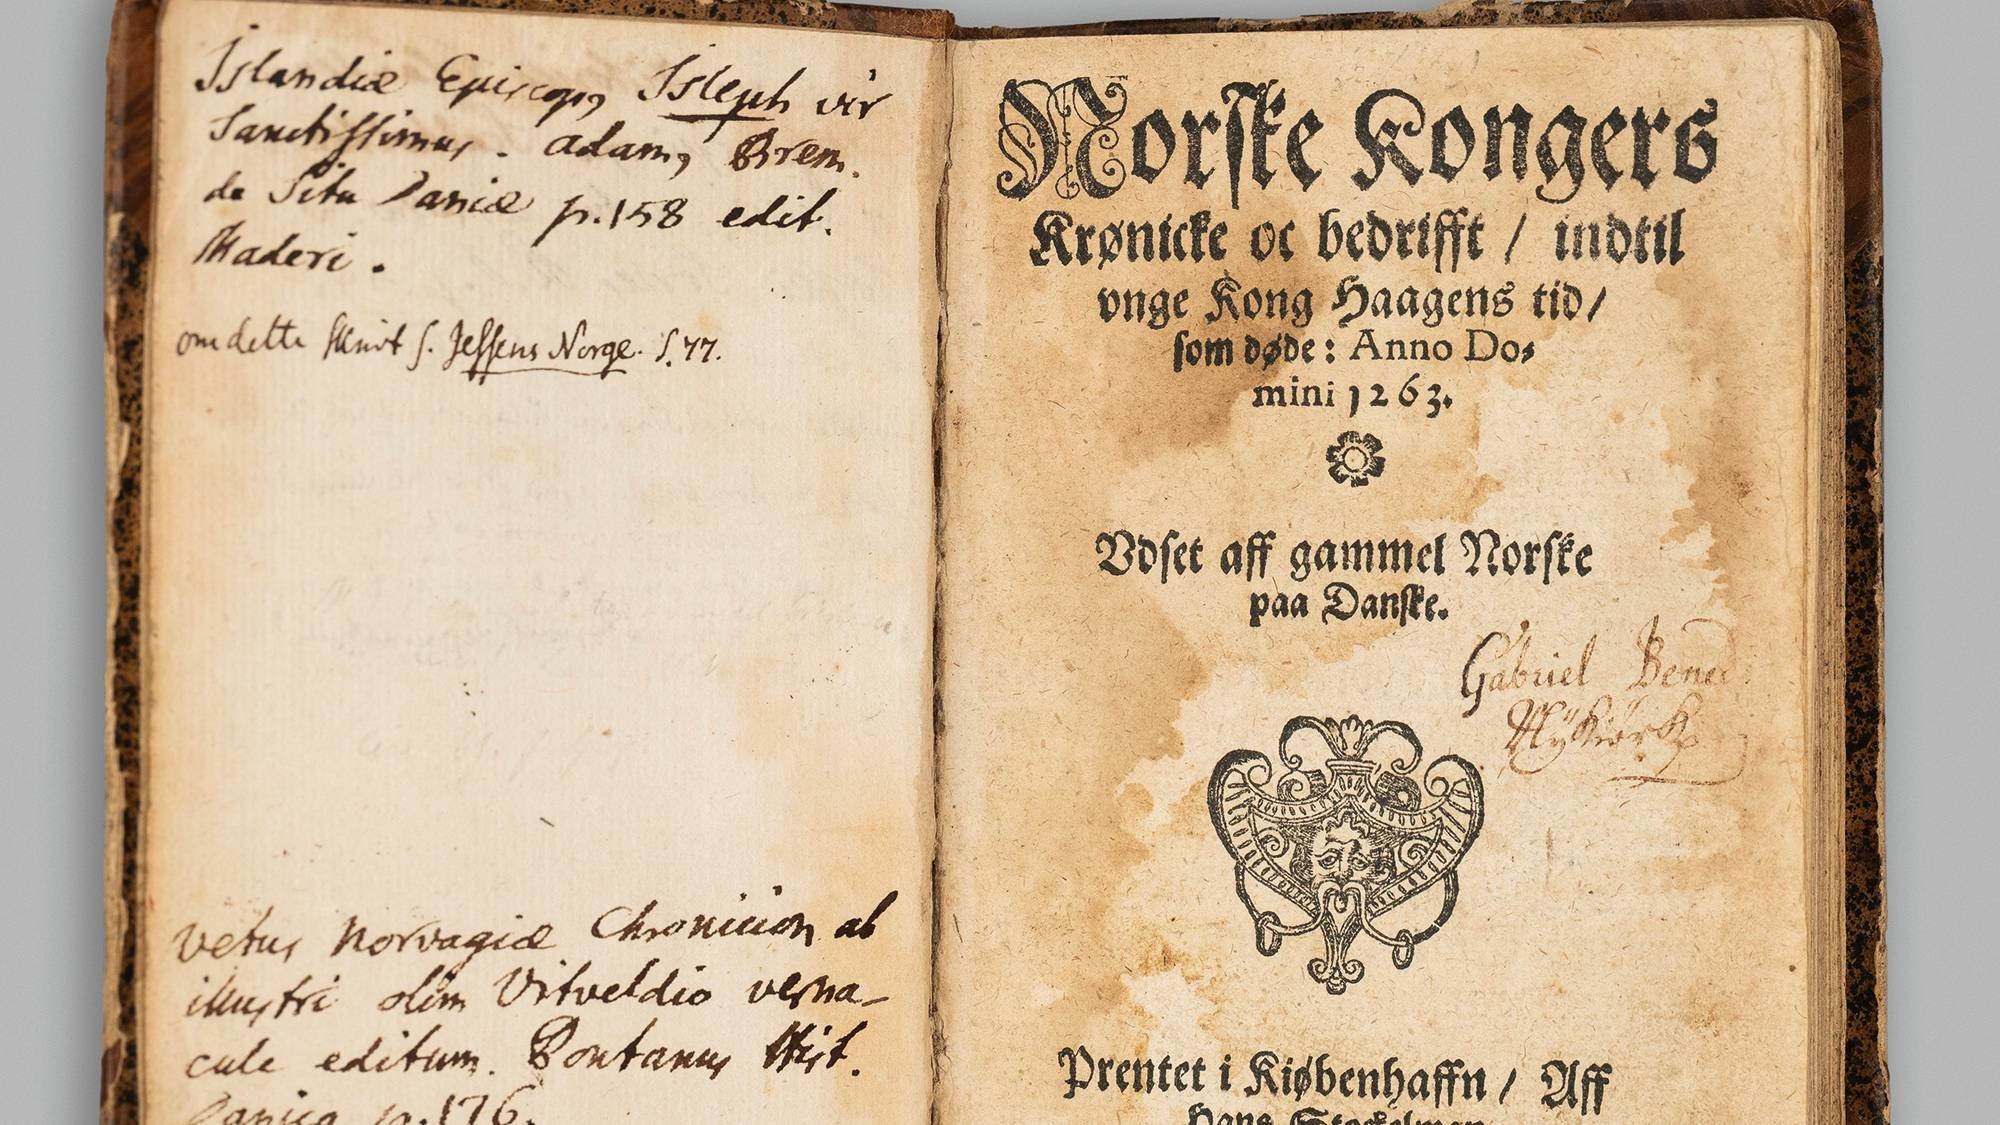 Islandiæ Episcopꝯ Isleph vir
Sanctissimus. Adamꝯ Brem.
de Situ Daniæ p. 158 edit.
Maderi.
om dette Skrivt s. Jessens Norge. S. 77.
Vetus Norvagiæ Chronicion ab
illustri olim Vitveldio verna-
cule editum. Pontanus Hist.
Danica p. 176.
Norske Kongers
Krønicke oc bedrifft / indtil
vnge Kong Haagens tid /
som døde: Anno Do-
mini 1263.
Vdset aff gammel Norske
paa Danske.
Gabriel Bened
Prentet i Kiøbenhaffn / Aff
Hans Stockelman